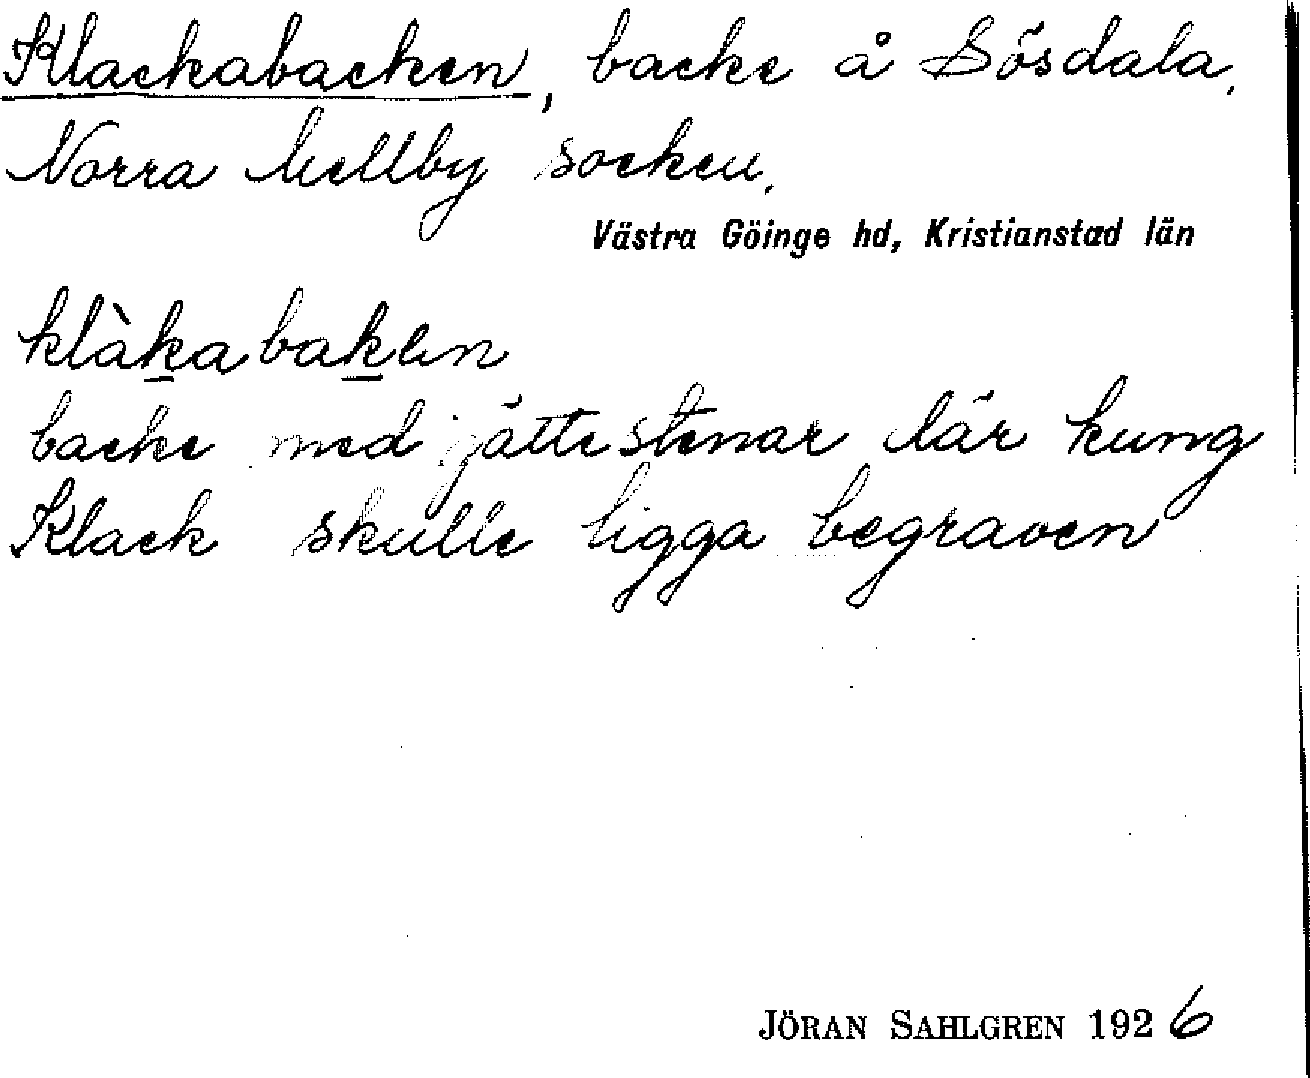 Klackabacken, backe å Sösdala,
Norra Mellby socken.
Västra Göinge hd, Kristianstad län
klàk̲abak̲en
backe med jättestenar där kung
Klack skulle ligga begraven
JÖRAN SAHLGREN 1926